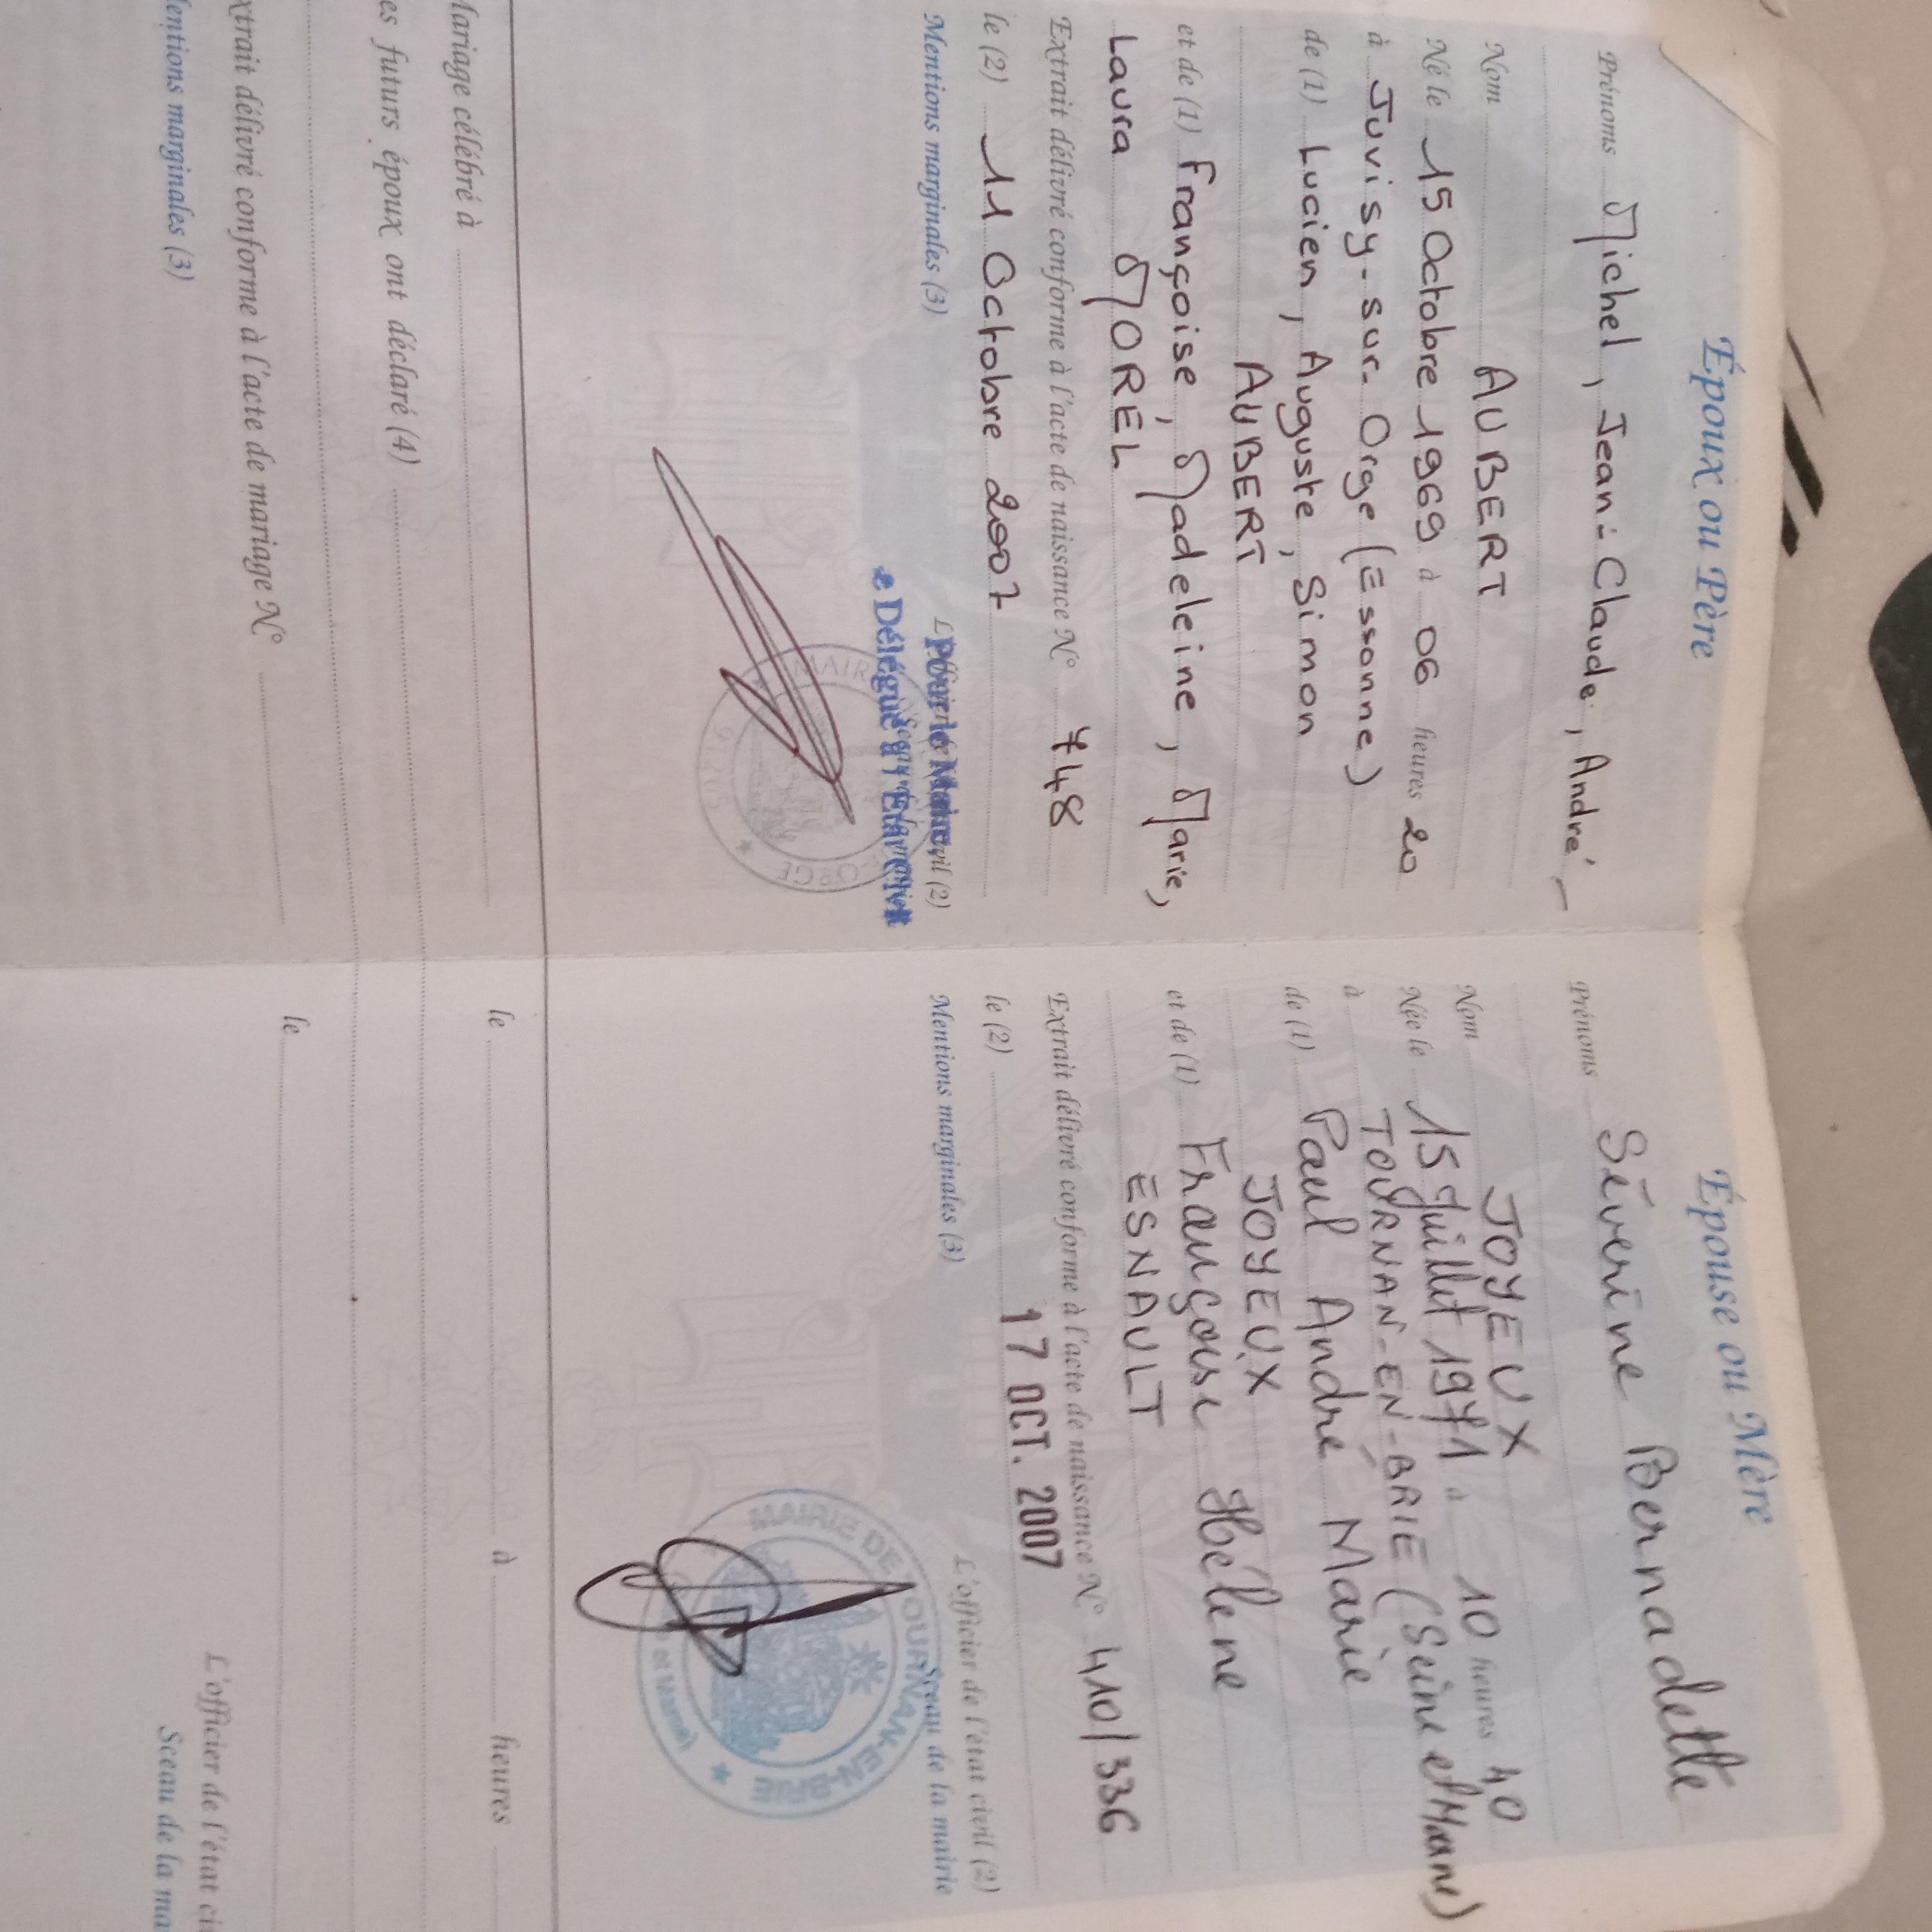 Époux ou Père
Prénoms Michel, Jean-Claude, André
Nom AUBERT
Né le 15 Octobre 1969 à 06 heures 20
à Juvisy-sur-Orge (Essonne)
de (1) Lucien, Auguste, Simon
AUBERT
et de (1) Françoise, Madeleine, Marie,
Laura MOREL
Extrait délivré conforme à l'acte de naissance N° 748
le (2) 11 Octobre 2007
Mentions marginales (3)
Pour le Maire,
Délégué à l'Etat Civil
MAIRIE
ORGE
Mariage célébré à
es futurs époux ont déclaré (4)
xtrait délivré conforme à l'acte de mariage N°
Mentions marginales (3)
Épouse ou Mère
Prénoms Séverine Bernadette
Nom JOYEUX
Née le 15 Juillet 1971 à 10 heures 40
à TOURNAN-EN-BRIE (Seine et Marne)
de (1) Paul André Marie
JOYEUX
et de (1) Françoise Hélène
ESNAULT
Extrait délivré conforme à l'acte de naissance N° 410/336
le (2) 17 OCT. 2007
Mentions marginales (3)
L'officier de l'état civil (2)
Sceau de la mairie
MAIRIE DE TOURNAN-EN-BRIE
et Marne)
le à heures
le
L'officier de l'état ci
Sceau de la ma